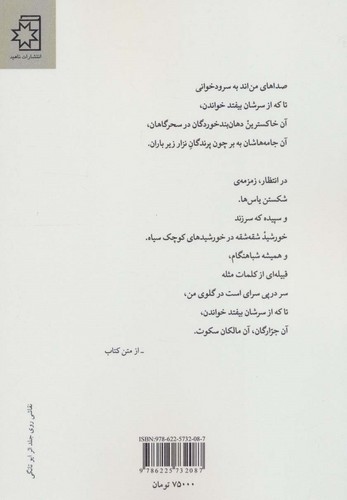 انتشارات ناهید
صداهای من‌اند به سرودخوانی
تا که از سرشان بیفتد خواندن،
آن خاکسترینْ دهان‌بندخوردگان در سحرگاهان،
آن جامه‌هاشان به بر چون پرندگانِ نزار زیر باران.
در انتظار، زمزمه‌ی
شکستن یاس‌ها.
و سپیده که سرزند
خورشیدْ شقه‌شقه در خورشیدهای کوچک سیاه.
و همیشه شباهنگام،
قبیله‌ای از کلمات مثله
سر در پی سرای است در گلوی من،
تا که از سرشان بیفتد خواندن،
آن جزارگان، آن مالکان سکوت.
ـ از متن کتاب
نقاشی روی جلد اثر ایو تانگی
ISBN: 978-622-5732-08-7
9786225732087
۷۵۰۰۰ تومان